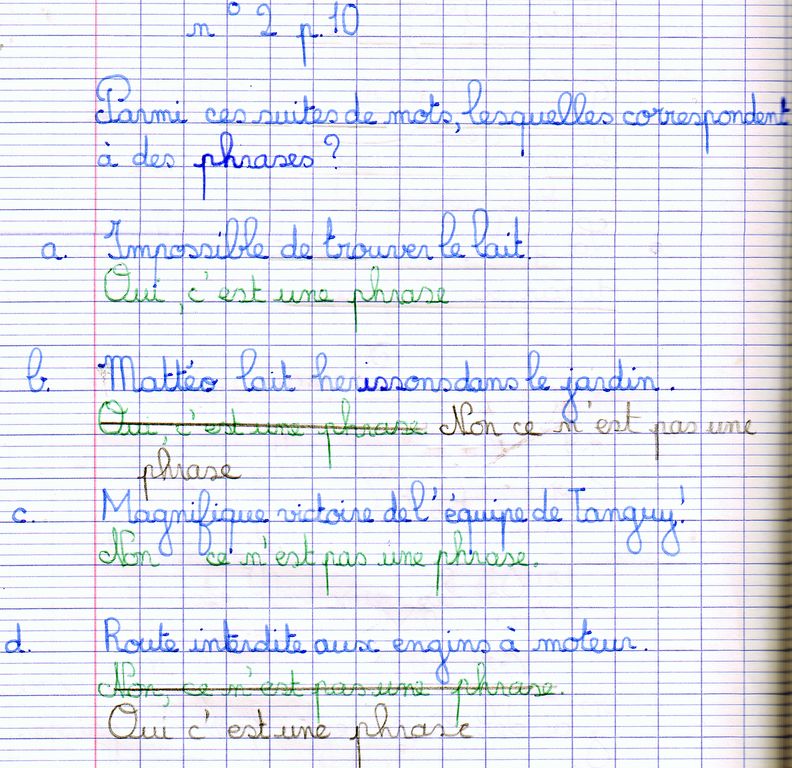 n° 2 p. 10
Parmi ces suites de mots, lesquelles correspondent
à des phrases ?
a. Impossible de trouver le lait.
Oui, c'est une phrase
b. Mattéo lait herissons dans le jardin.
Oui, c'est une phrase Non ce n'est pas une
phrase
c. Magnifique victoire de l'équipe de Tanguy!
Non ce n'est pas une phrase.
d. Route interdite aux engins à moteur.
Non, ce n'est pas une phrase.
Oui c'est une phrase